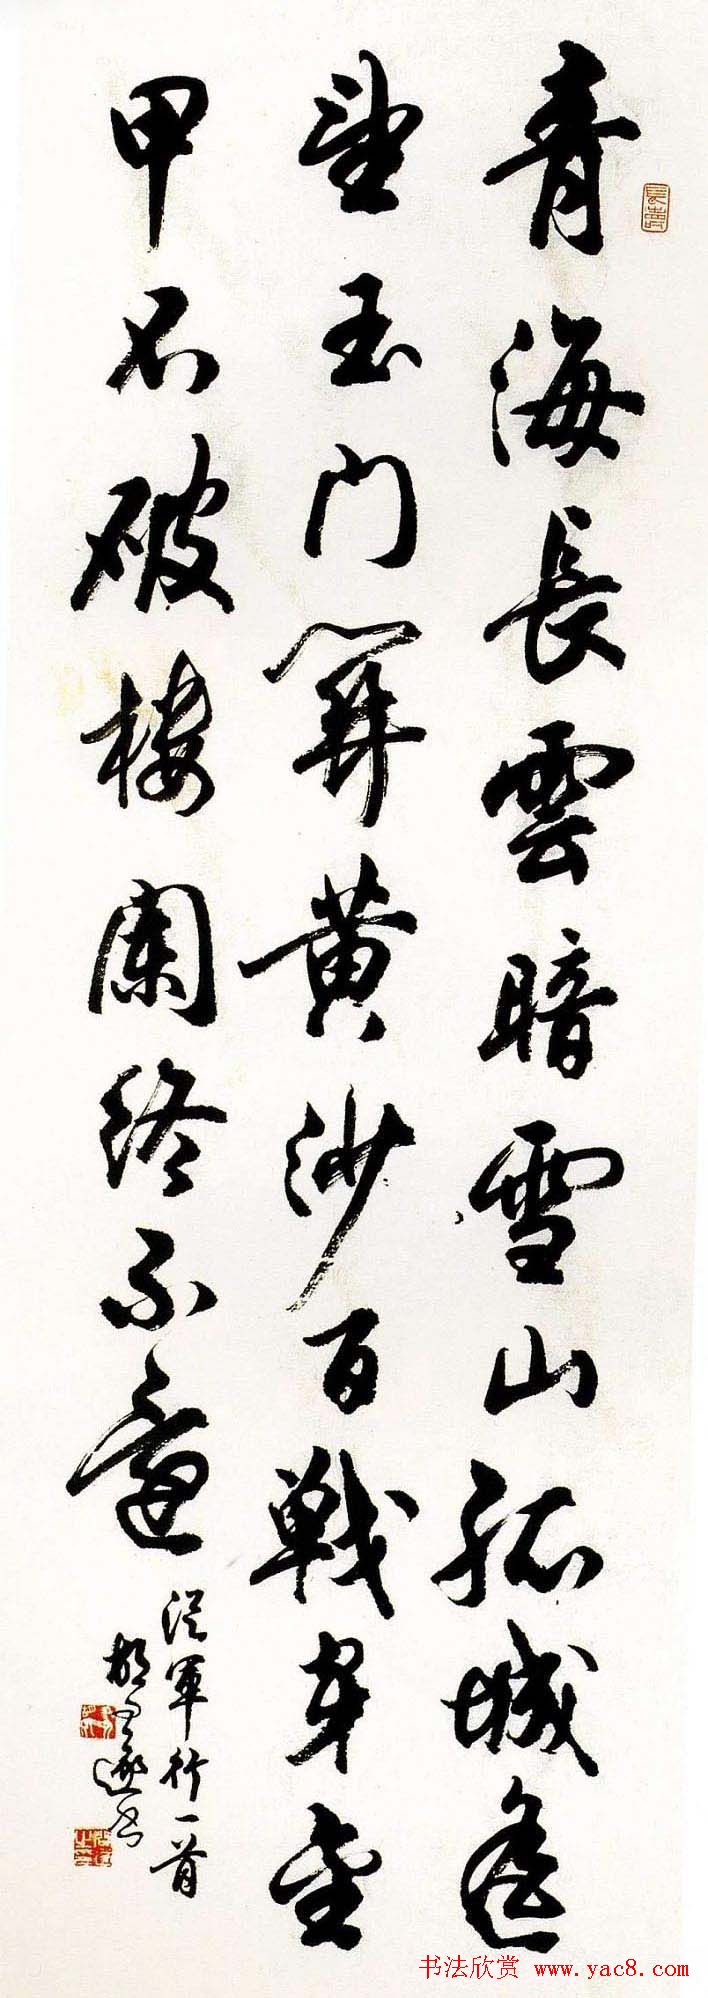 青海長雲暗雪山孤城遥
望玉门関黄沙百戰穿金
甲不破楼蘭终不還
從軍行一首
胡问遂书
书法欣赏 www.yac8.com